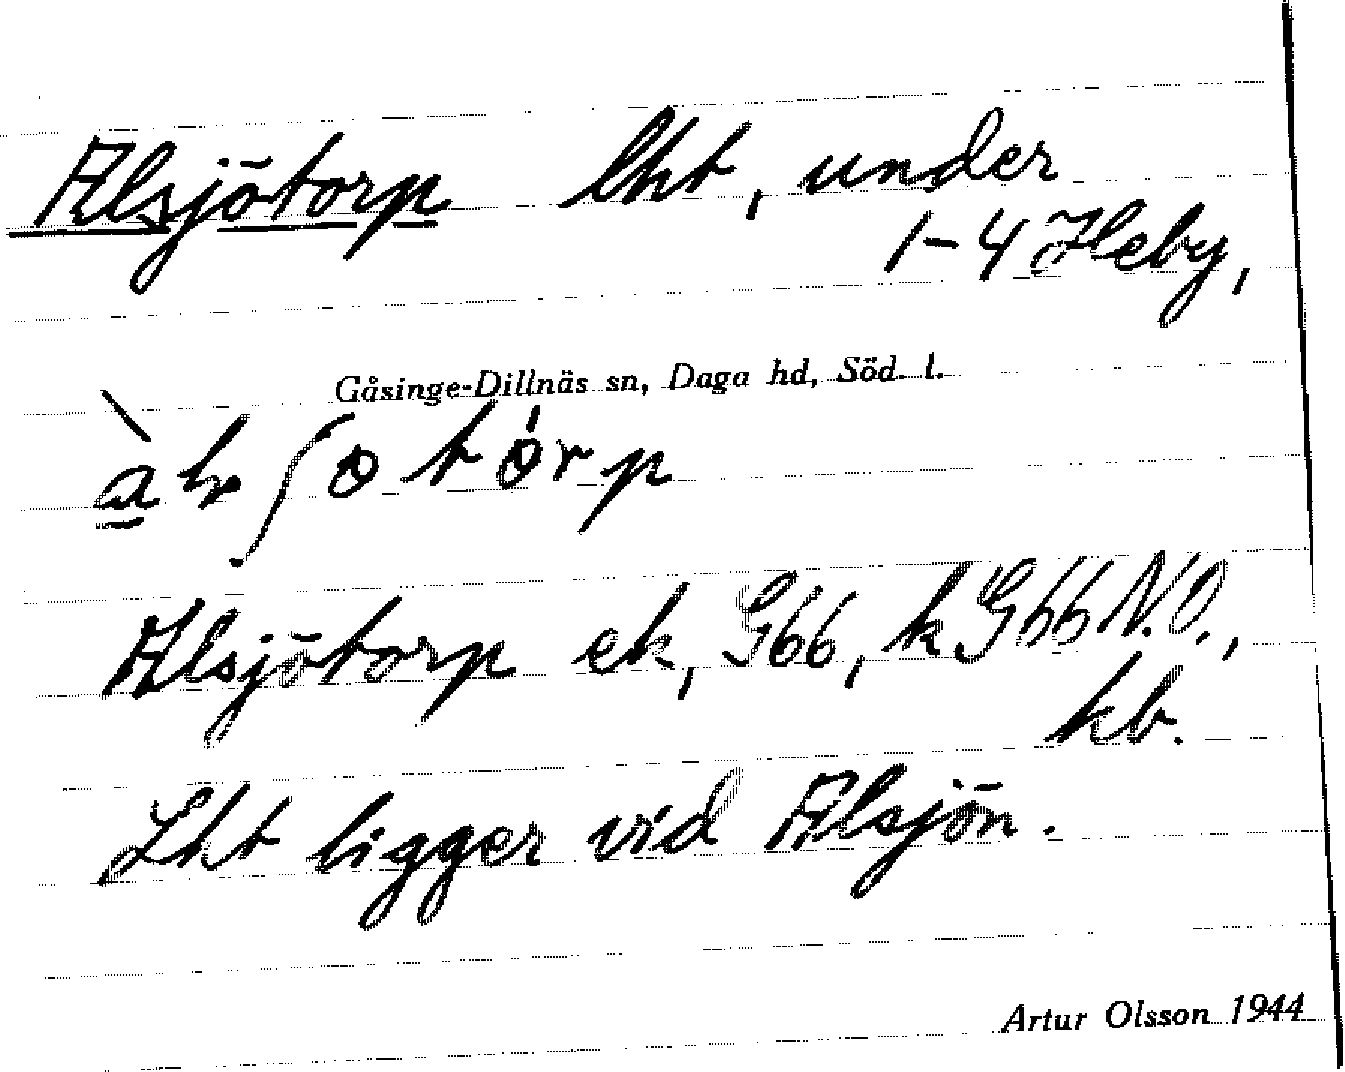 Alsjötorp lht, under
1-4 Heby,
Gåsinge-Dillnäs sn, Daga hd, Söd. l.
Alsjötorp ek, G66, k G66 N.O.,
kb.
Lht ligger vid Alsjön.
Artur Olsson 1944